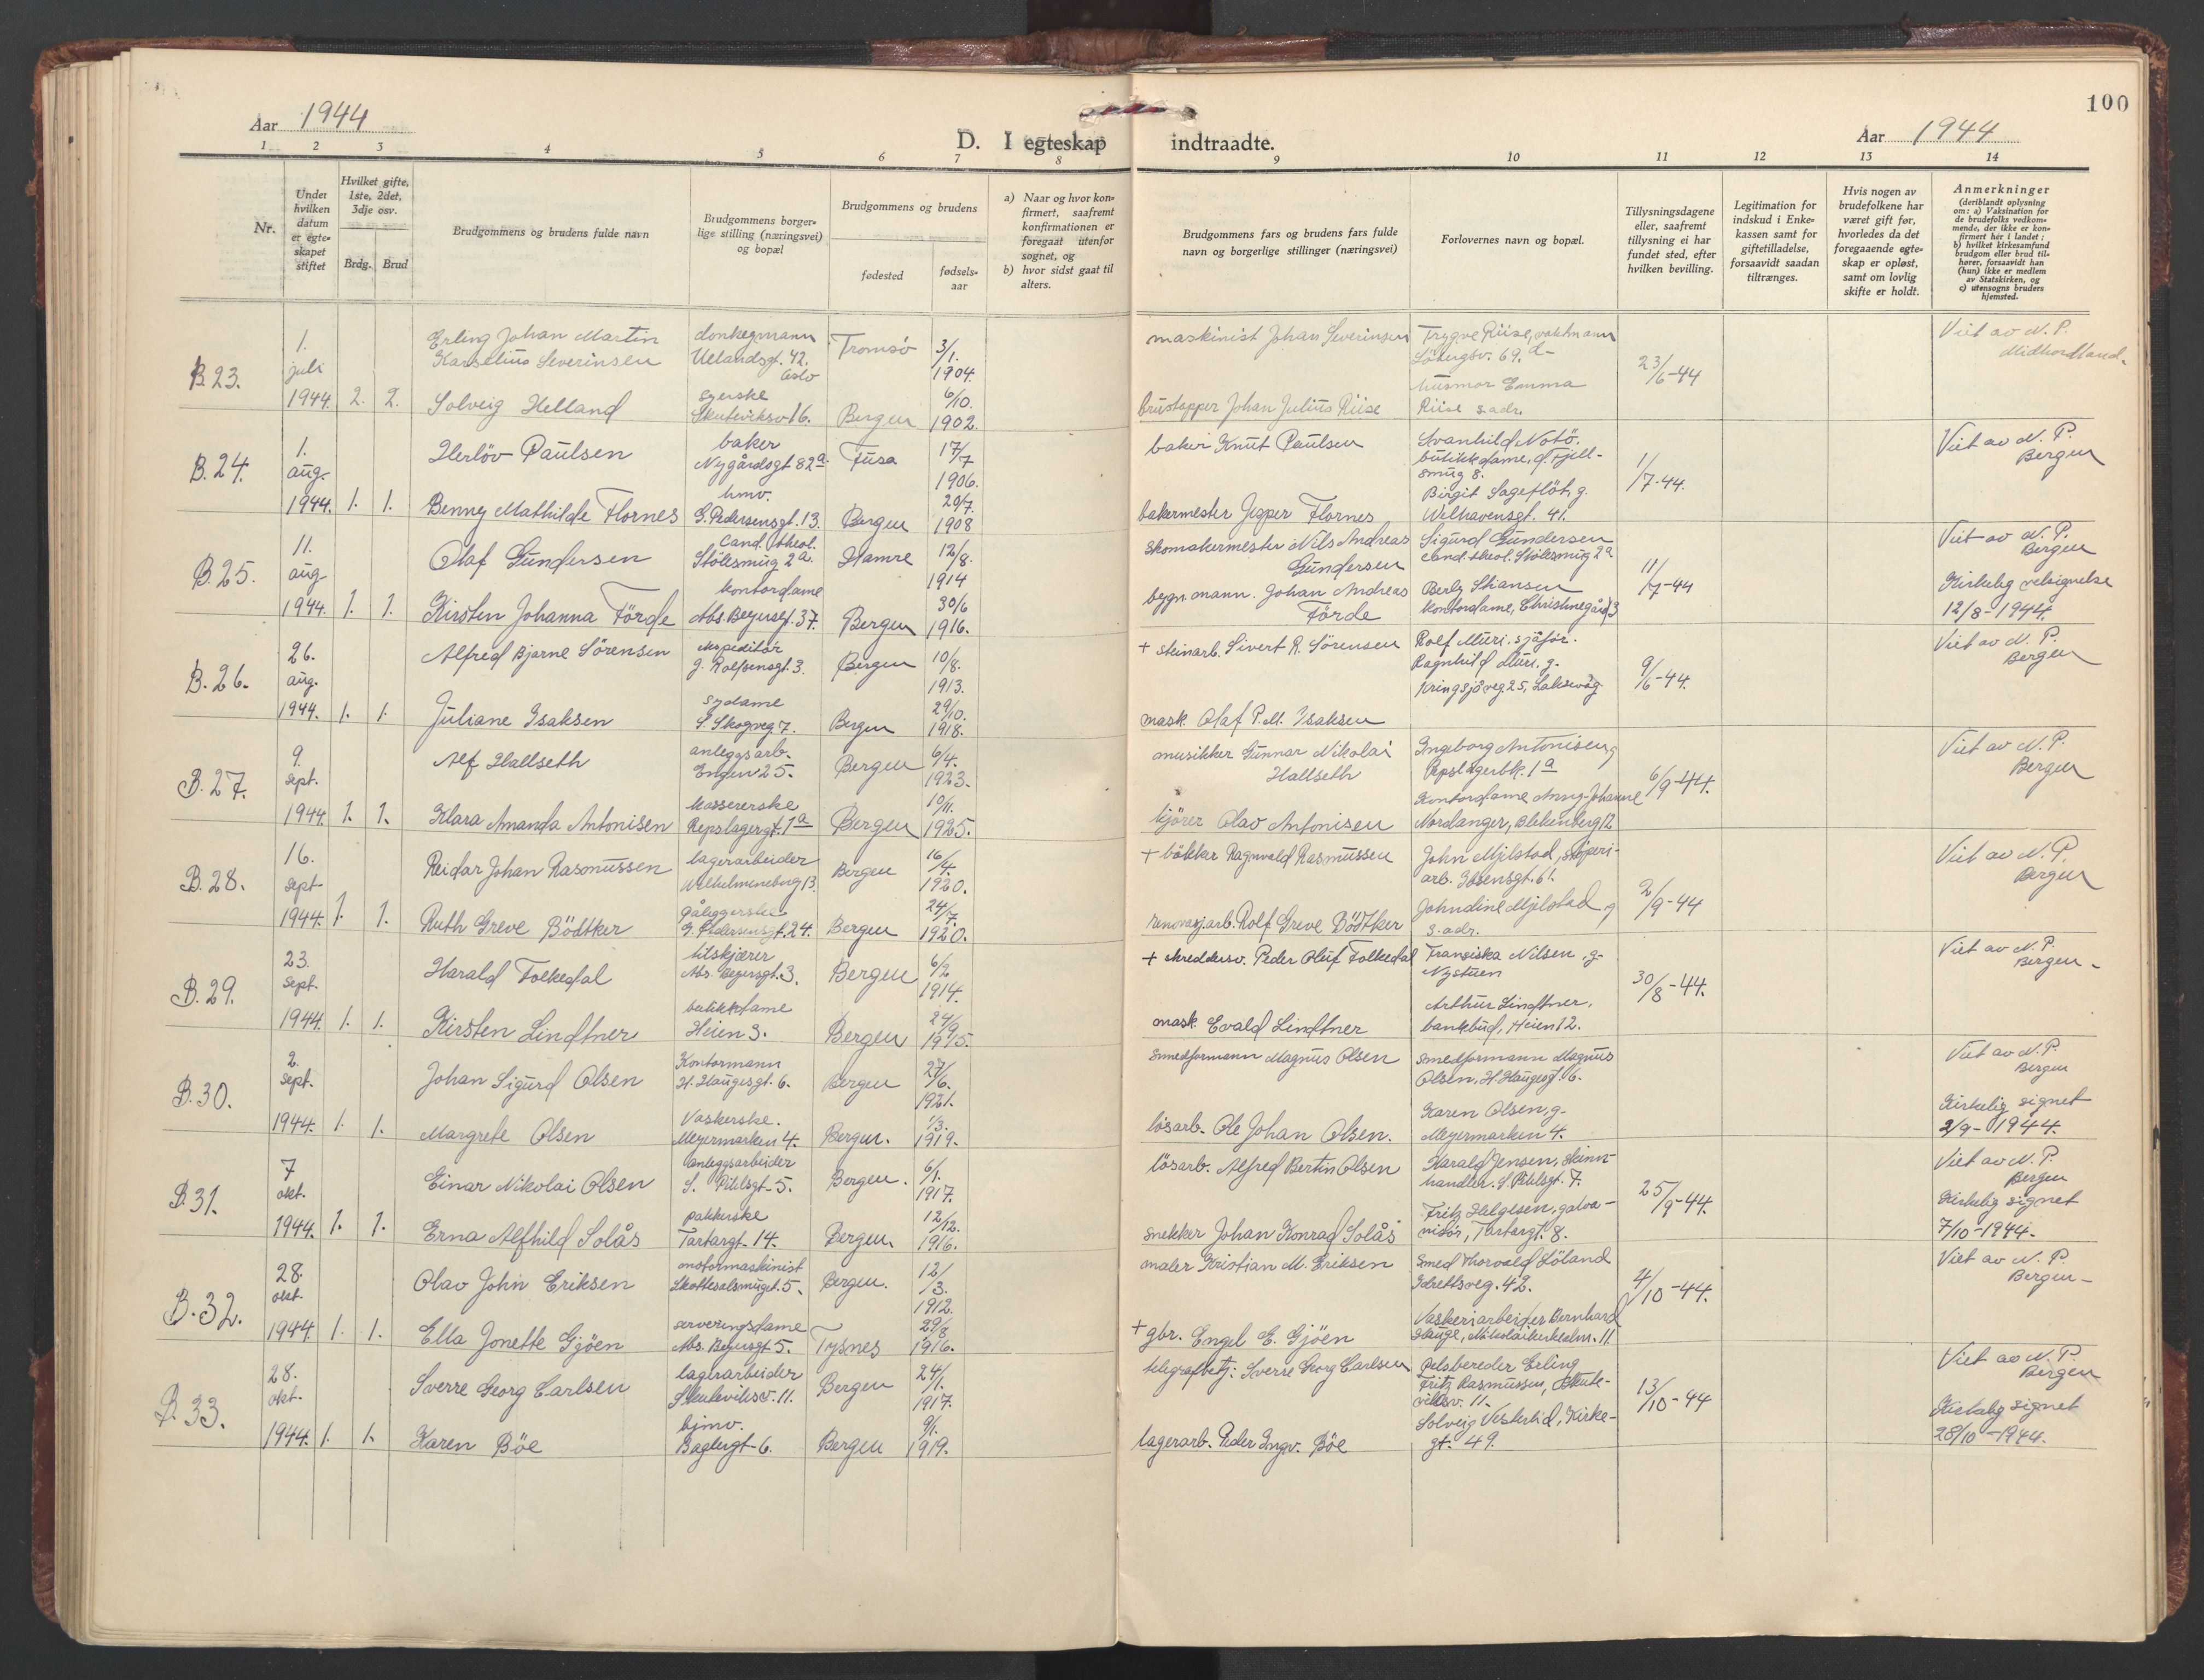 100
Aar 1944
D. I egteskap indtraadte.
Aar 1944
1 2 3 4 5 6 7 8 9 10 11 12 13 14
Nr.
Under hvilken datum er egteskapet stiftet
Hvilket gifte, 1ste, 2det, 3dje osv.
Brdg. Brud
Brudgommens og brudens fulde navn
Brudgommens borgerlige stilling (næringsvei) og bopæl
Brudgommens og brudens
fødested
fødselsaar
a) Naar og hvor konfirmert, saafremt konfirmationen er foregaat utenfor sognet, og
b) hvor sidst gaat til alters.
Brudgommens fars og brudens fars fulde navn og borgerlige stillinger (næringsvei)
Forlovernes navn og bopæl.
Tillysningsdagene eller, saafremt tillysning ei har fundet sted, efter hvilken bevilling.
Legitimation for indskud i Enkekassen samt for giftetilladelse, forsaavidt saadan tiltrænges.
Hvis nogen av brudefolkene har været gift før, hvorledes da det foregaaende egteskap er opløst, samt om lovlig skifte er holdt.
Anmerkninger
(deriblandt oplysning om: a) Vaksination for de brudefolks vedkommende, der ikke er konfirmert her i landet; b) hvilket kirkesamfund brudgom eller brud tilhører, forsaavidt han (hun) ikke er medlem av Statskirken, og c) utensogns bruders hjemsted.
B.23. 1. juli 1944. 2. 2.
Erling Johan Martin Karselius Severinsen
donkeymann Uelandsgt. 42. Oslo
Tromsö 3/1. 1904.
maskinist Johan Severinsen
Trygve Riise, vaktmann
69. d-
23/6-44
Viet av N. P. Midhordland.
Solveig Helland
syerske
Skuteviksv 16.
Bergen 6/10. 1902.
Johan Julius Riise
husmor Emma Riise s. adr.
B.24. 1. aug. 1944. 1. 1.
Herlöv Paulsen
baker
Nygårdsgt 82a.
Fusa 17/7 1906.
baker Knut Paulsen
Svanhild Notö.
butikkdame, d. Fjellsmug 8.
1/7-44.
Viet av N. P. Bergen
Benny Mathilde Flornes
hmv.
G. Pedersensgt. 13.
Bergen 20/7. 1908
bakermester Jesper Flornes
Birgit Sageflöt, g.
Welhavensgt. 41.
B.25. 11. aug 1944. 1. 1.
Olaf Gundersen
Cand. theol.
Stölesmug 2a.
Hamre 12/8. 1914
skomakermester Nils Andreas Gundersen
Sigurd Gundersen
cand. theol. Stölesmug 2a.
11/7-44
Viet av N. P. Bergen
Kirkelig velsignelse
12/8-1944.
Kirsten Johanna Förde
kontordame
Abs. Beyersgt. 37.
Bergen 30/6 1916.
bygn. mann. Johan Andreas Förde
Berly Stiansen
kontordame, Christinegård 3
B.26. 26. aug. 1944. 1. 1.
Alfred Bjarne Sörensen
ekspeditör
J. Rolfsensgt. 3.
Bergen 10/8. 1913.
+ steinarb. Sivert R. Sörensen
Rolf Muri. sjåför.
Ragnhild Muri. g.
Kringsjåveg 25, Laksevåg
9/6-44.
Viet av N. P. Bergen
Juliane Isaksen
sydame
S. Skogveg 7.
Bergen 29/10. 1918.
mask. Olaf P. M. Isaksen
B.27. 9. sept. 1944. 1. 1.
Alf Hallseth
anleggsarb.
Engen 25.
Bergen 6/4. 1923.
musikker Gunnar Nikolai Hallseth
Ingeborg Antonisen, g
Repslagerbk. 1a
6/9-44.
Viet av N. P. Bergen
Klara Amanda Antonisen
kassererske
Repslagergt. 1a
Bergen 10/11. 1925.
kjörer Olav Antonisen
Kontordame Anny-Johanne
Nordanger, Blekenberg 12
B.28. 16. sept 1944. 1. 1.
Reidar Johan Rasmussen
lagerarbeider
Wilhelmineborg 13.
Bergen 16/4. 1920.
+ bökker Ragnvald Rasmussen
John Mjelstad,
arb. Ibsensgt. 61.
2/9-44
Viet av N. P. Bergen
Ruth Greve Bödtker
påleggerske
G. Pedersensgt. 24.
Bergen 24/7. 1920.
renovasj.arb. Rolf Greve Bödtker
Johndine Mjelstad g
s. adr.
B.29. 23. sept. 1944. 1. 1.
Harald Folkedal
tilskjærer
Abs. Beyersgt. 3.
Bergen 6/2 1914.
+ skreddersv. Peder Oluf Folkedal
Fransiska Nilsen, g-
Nystuen
30/8-44.
Viet av N. P. Bergen-
Kirsten Lindtner
butikkdame
Heien 3.
Bergen 24/9 1915.
mask. Evald Lindtner
Arthur Lindtner,
bankbud, Heien 12.
B.30. 2. sept. 1944. 1. 1.
Johan Sigurd Olsen
Kontormann
H. Haugesgt. 6.
Bergen 27/6. 1921.
smedformann Magnus Olsen
smedformann Magnus
Olsen, H. Haugesgt. 6.
Viet av N. P. Bergen
Kirkelig signet
2/9-1944.
Margrete Olsen
Vaskerske.
Meyermarken 4.
Bergen. 1/3. 1919.
lösarb. Ole Johan Olsen.
Karen Olsen, g-
Meyermarken 4.
B.31. 7 okt. 1944. 1. 1.
Einar Nikolai Olsen
anleggsarbeider
S. Pihlsgt- 5.
Bergen. 6/1. 1917.
lösarb. Alfred Bertin Olsen
Harald Jensen, skinnhandler. S. Pihlsgt. 7.
25/9-44.
Viet av N. P. Bergen
Kirkelig signet
7/10-1944.
Erna Alfhild Solås
pakkerske
Tartargt- 14.
Bergen. 12/12. 1916.
snekker Johan Konrad Solås
Fritz Helgesen, galvanisör, Tartargt. 8.
B.32. 28. okt. 1944. 1. 1.
Olav John Eriksen
motormaskinist
Skottesalsmuget. 5.
Bergen. 12/3. 1912.
maler Kristian M. Eriksen
smed Thorvald Löland
Idrettsveg. 42.
4/10-44.
Viet av N. P. Bergen-
Ella Jonette Gjöen
serveringsdame
Abs. Beyersgt 5.
Tysnes 29/8 1916.
+ gbr. Engel E. Gjöen
Vaskeriarbeider Bernhard
Hauge, Nikolaikirkealm. 11
B.33. 28. okt. 1944. 1. 1.
Sverre Georg Carlsen
lagerarbeider
Skuteviksv. 11.
Bergen 24/1. 1917.
telegrafbetj: Sverre Georg Carlsen
Pelsbereder Erling
Fritz Rasmussen, Skuteviksv. 11.
13/10-44
Viet av N. P. Bergen
Kirkelig signet
28/10-1944.
Karen Böe
hjmv.
Baglergt- 6.
Bergen 9/1. 1919.
lagerarb. Peder Ingv. Böe
Solveig Vesterlid, Kirkegt. 49.